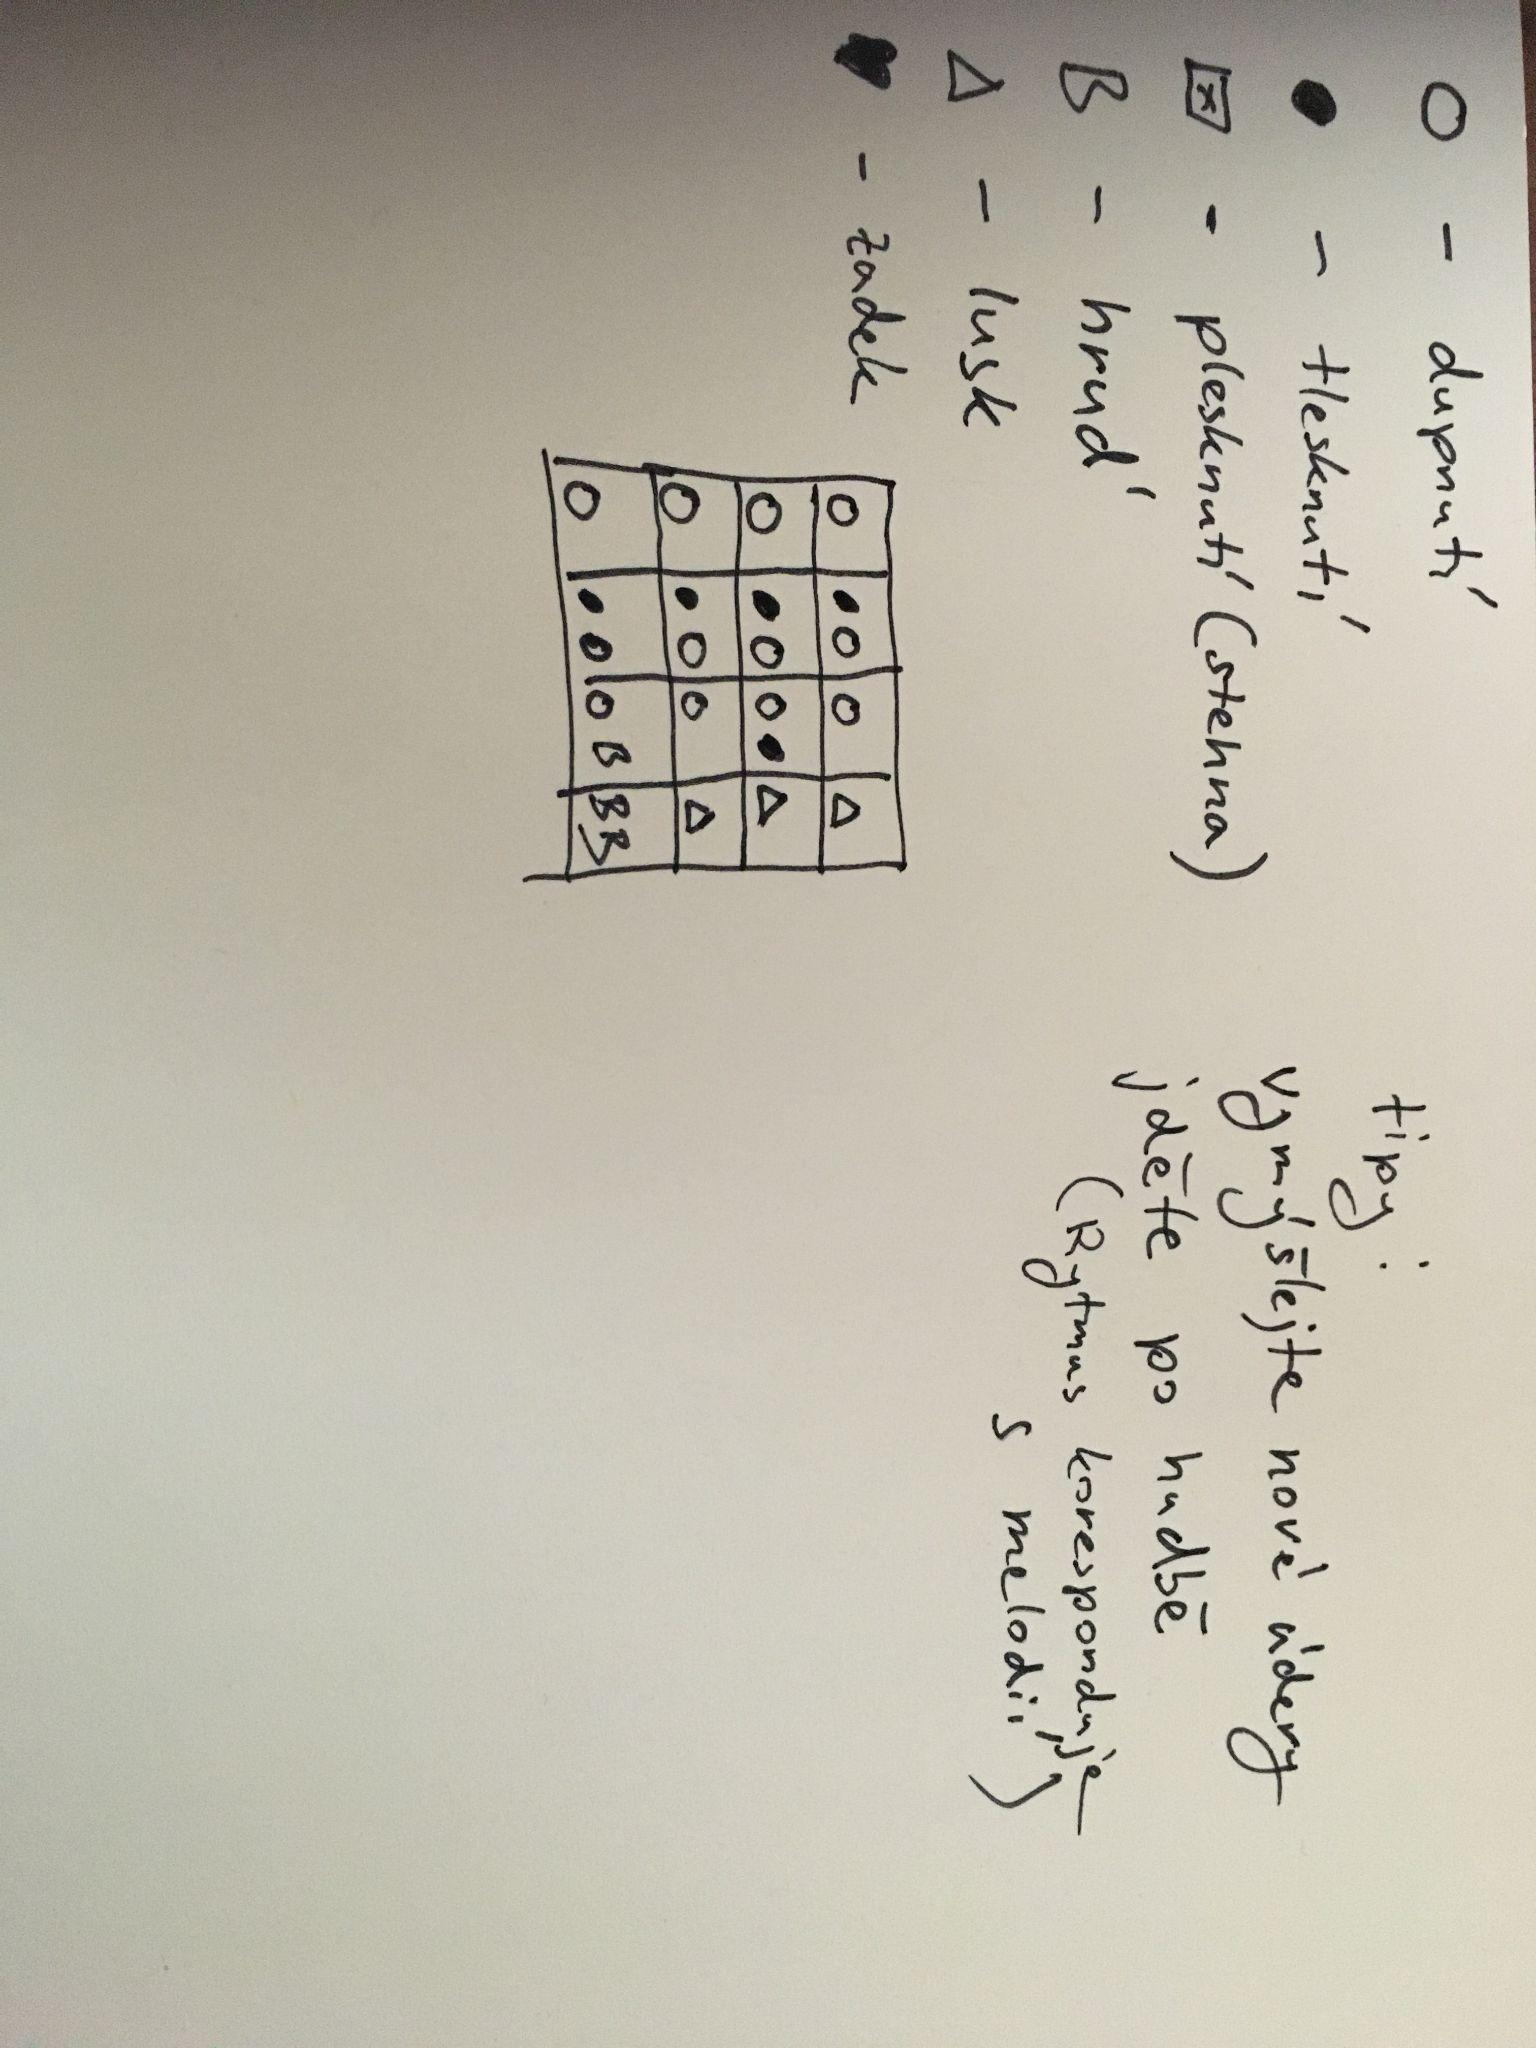 O - dupnutí
● - tlesknutí
☒ - plesknutí (stehna)
B - hrudˊ
△ - lusk
♥ - zadek
O | ● O | O | △
O | ● O | O ● | △
O | ● O | O | △
O | ● ● | O B | B B
tipy:
vymýšlejte nové údery
jděte po hudbě
(Rytmus koresponduje
s melodií)